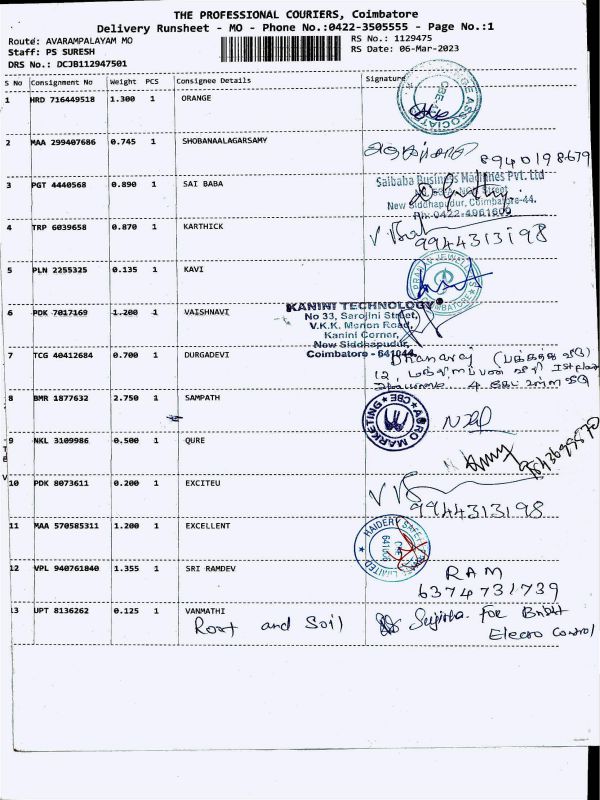 THE PROFESSIONAL COURIERS, Coimbatore
Delivery Runsheet - MO - Phone No.:0422-3505555 - Page No.:1
Route: AVARAMPALAYAM MO
RS No.: 1129475
Staff: PS SURESH
RS Date: 06-Mar-2023
DRS No.: DCJB112947501
S No Consignment No Weight PCS Consignee Details Signature
1 HRD 716449518 1.300 1 ORANGE
2 MAA 299407686 0.745 1 SHOBANAALAGARSAMY
8940198679
3 PGT 4440568 0.890 1 SAI BABA
Saibaba Business Machines Pvt. Ltd
New Siddhapudur, Coimbatore-44.
Ph:0422-4961609
4 TRP 6039658 0.870 1 KARTHICK
9944313198
5 PLN 2255325 0.135 1 KAVI
6 PDK 7017169 1.200 1 VAISHNAVI
KANINI TECHNOLOGY
No 33, Sarojini Street,
V.K.K. Menon Road,
Kanini Corner,
New Siddhapudur,
Coimbatore - 641044.
7 TCG 40412684 0.700 1 DURGADEVI
Dhanaraj
8 BMR 1877632 2.750 1 SAMPATH
AGRO MARKETING CBE
9 NKL 3109986 0.500 1 QURE
10 PDK 8073611 0.200 1 EXCITEU
9944313198
11 MAA 570585311 1.200 1 EXCELLENT
12 VPL 940761840 1.355 1 SRI RAMDEV
RAM
6374731739
13 UPT 8136262 0.125 1 VANMATHI
Root and Soil
Electro Control